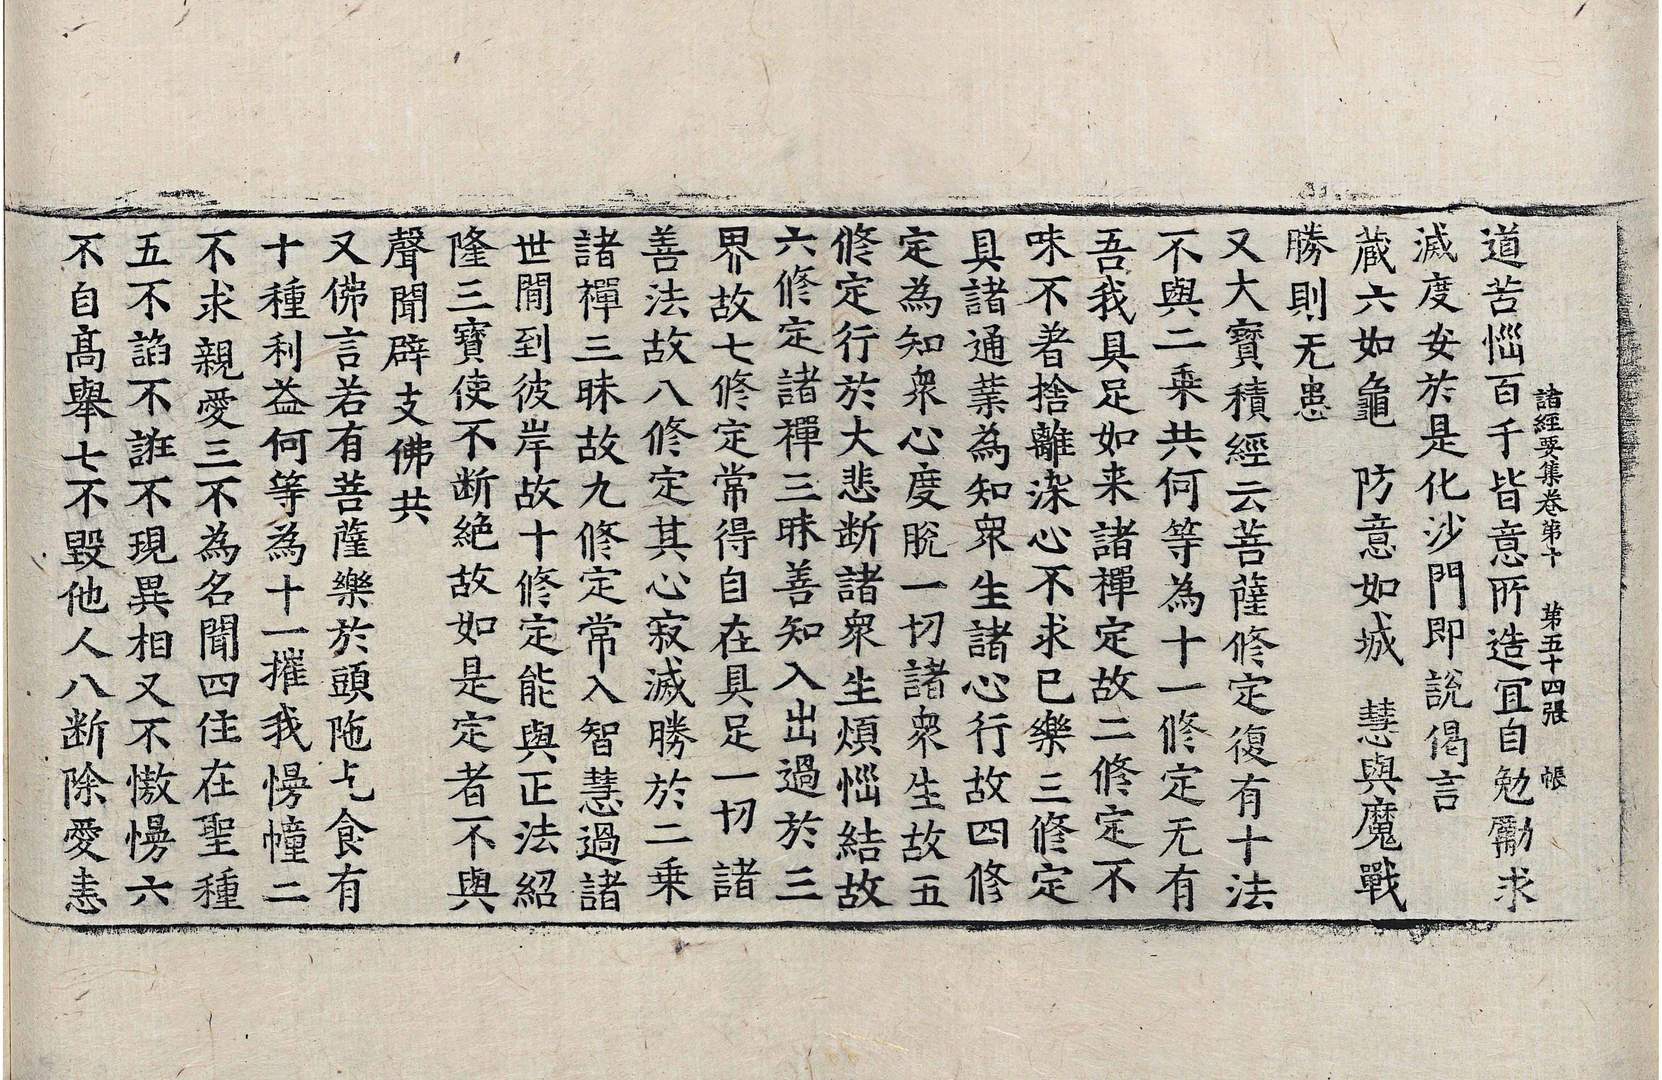 諸經要集卷第十 第五十四張 帳
道苦惱百千皆意所造冝自勉勵求
滅度安於是化沙門即說偈言
蔵六如龜 防意如城 慧與魔戰
勝則无患
又大寶積經云菩薩修定復有十法
不與二乘共何等為十一修定无有
吾我具足如来諸禪定故二修定不
味不著捨離染心不求已樂三修定
具諸通業為知衆生諸心行故四修
定為知衆心度脫一切諸衆生故五
修定行於大悲断諸衆生煩惱結故
六修定諸禪三昧善知入出過於三
界故七修定常得自在具足一切諸
善法故八修定其心寂滅勝於二乗
諸禪三昧故九修定常入智慧過諸
世間到彼岸故十修定能與正法紹
隆三寶使不断絶故如是定者不與
聲聞辟支佛共
又佛言若有菩薩樂於頭陁乞食有
十種利益何等為十一摧我慢幢二
不求親愛三不為名聞四住在聖種
五不諂不誑不現異相又不憿慢六
不自髙舉七不毀他人八断除愛恚